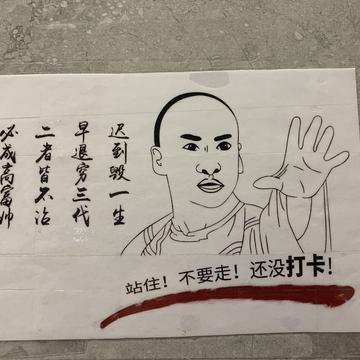 迟到毁一生
早退穷三代
二者皆不沾
必成高富帅
站住！不要走！还没打卡！